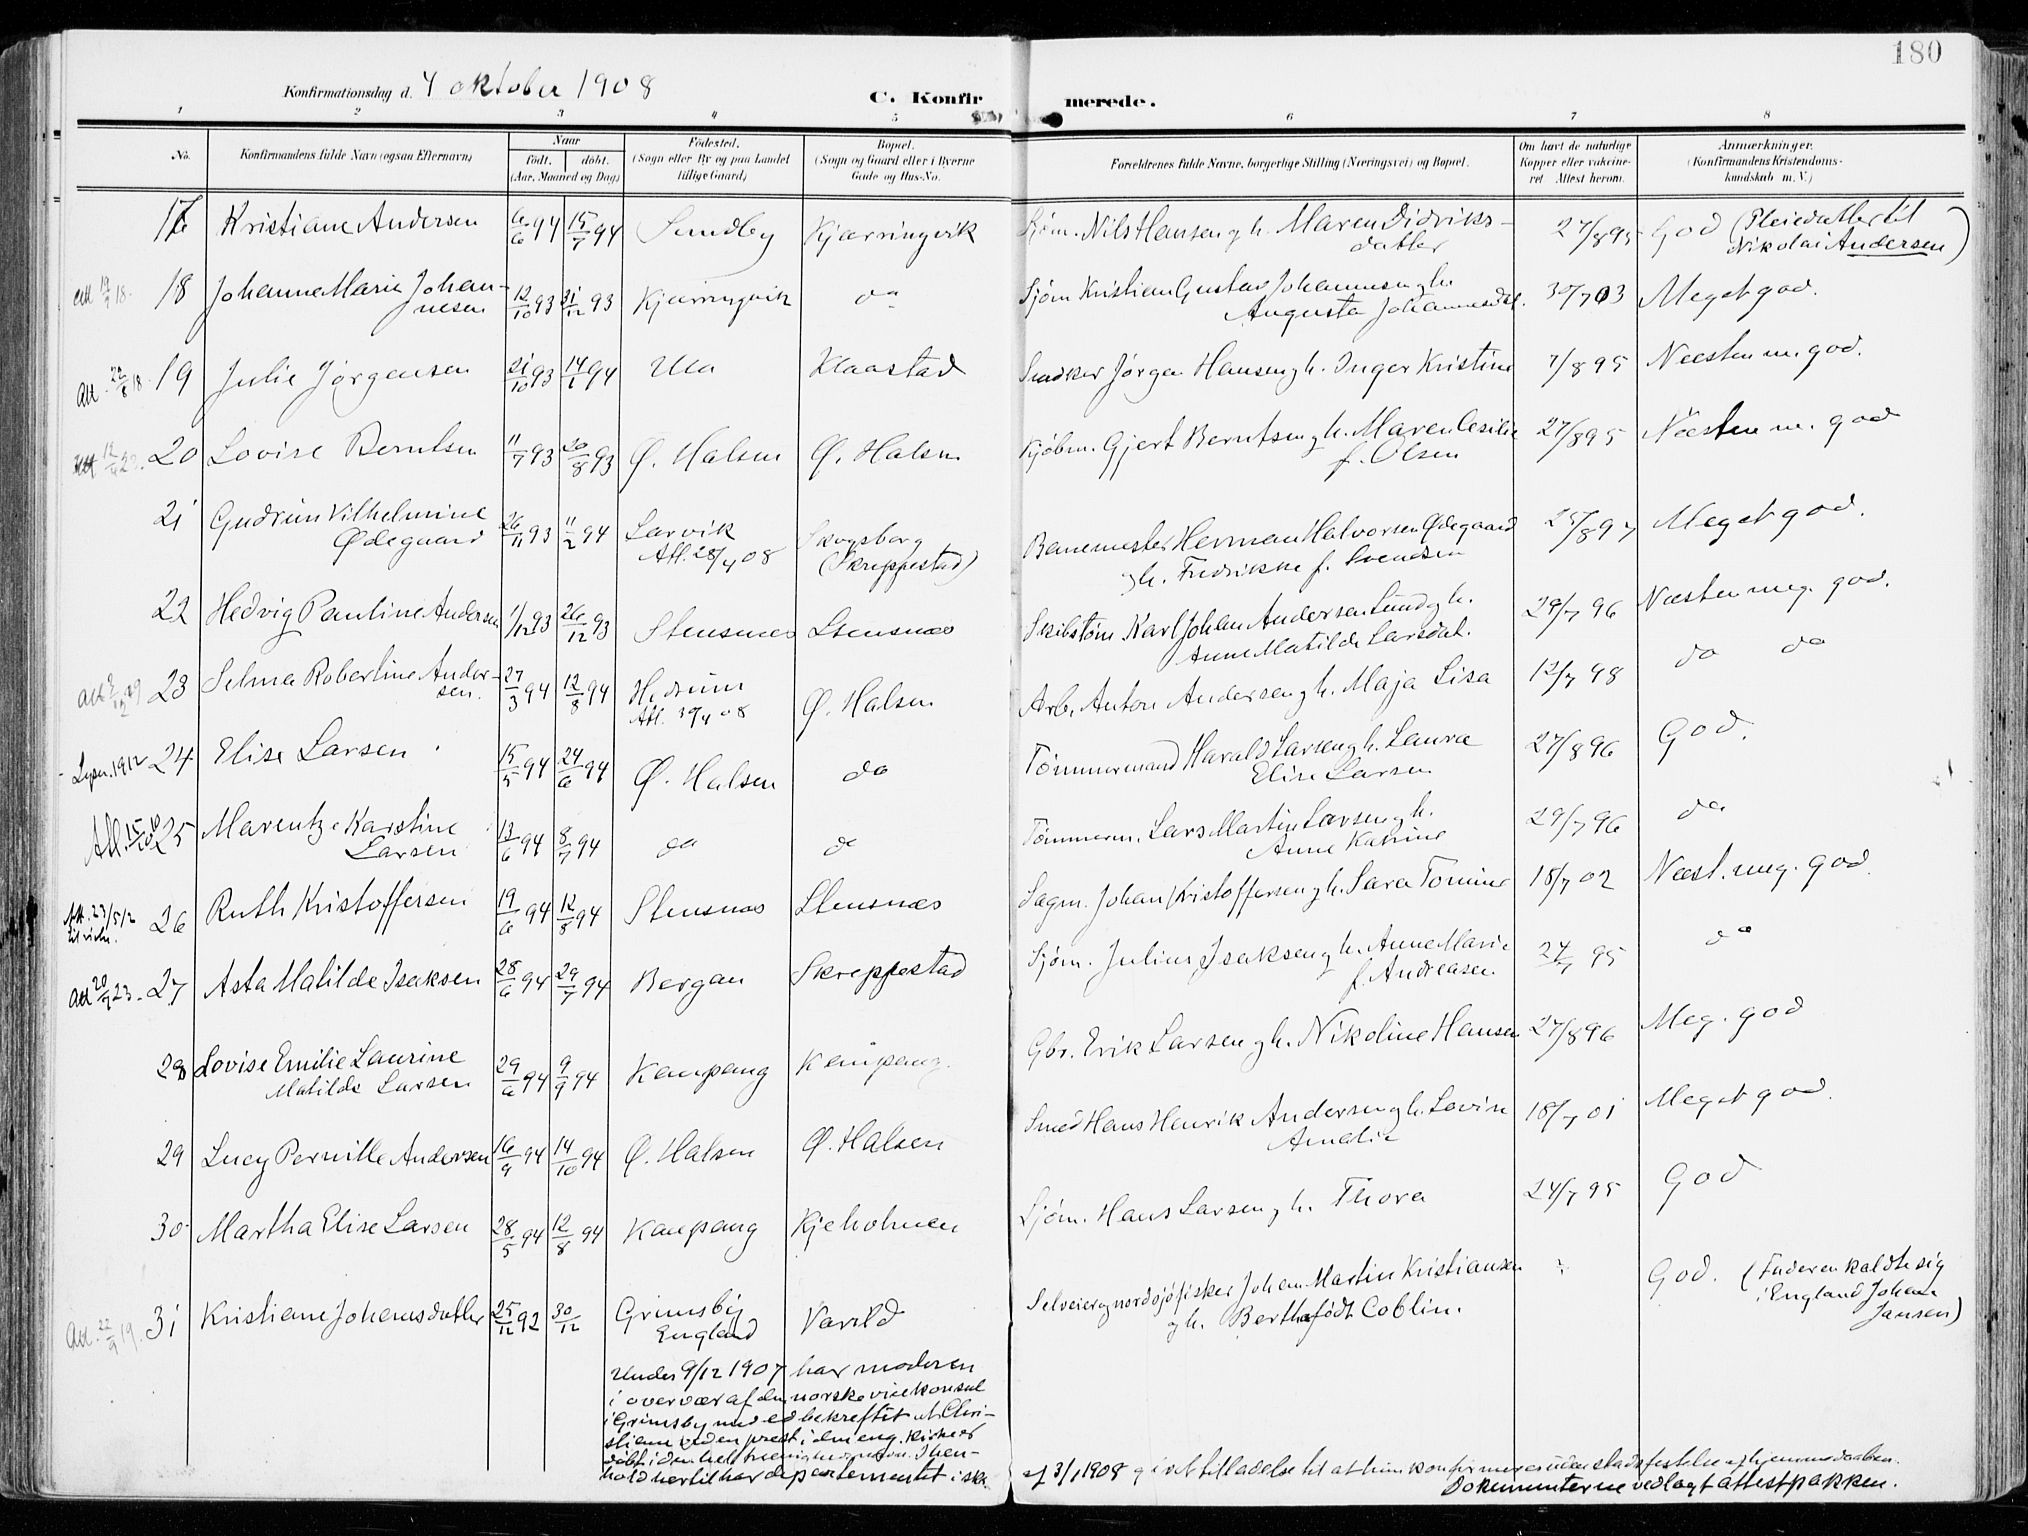 180
Konfirmationsdag d. 4 oktober 1908
C. Konfirmerede.
1 2 3 4 5 6 7 8
No. Konfirmandens fulde Navn (ogsaa Efternavn) Naar født. døbt. (Aar, Maaned og Dag) Fødested. (Sogn eller By og paa Landet tillige Gaard) Bopæl. (Sogn og Gaard eller i Byerne Gade og Hus-No. Forældrenes fulde Navne, borgerlige Stilling (Næringsvei) og Bopæl. Om havt de naturlige Kopper eller vakcineret. Attest herom. Anmærkninger. (Konfirmandens Kristendomskundskab m. V.)
17 Kristiane Andersen 6/6 94 15/7 94 Sundby Kjærringvik Sjøm. Nils Hansen og h. Maren Didriks- 27/8 95 God (Pleiedatter til
datter Nikolai Andersen)
Att 18. 18 Johanne Marie Johan- 12/10 93 31/12 93 Kjærringvik do Sjøm Kristian Gustav Johannesen og h. 30/7 03 Meget god.
nesen Augusta Johannesdat.
Att. 22/8 18. 19 Julie Jørgensen 21/10 93 14/1 94 Ula Klaastad Snedker Jørgen Hansen og h. Inger Kristine 7/8 95 Næsten m. god.
20 Lovise Berntsen 11/7 93 20/8 93 Ø. Halsen Ø. Halsen Kjøbm. Gjert Berntsen og h. Maren Cesilie 27/8 95 Næsten m. god
f. Olsen
21 Gudrun Vilhelmine 26/11 93 11/2 94 Larvik Skogsborg Banemester Herman Halvorsen Ødegaard 25/8 97 Meget god.
Ødegaard Att. 28/4 08 (Skreppestad) og h. Fredrikke f. Svendsen
22 Hedvig Pauline Andersen 1/12 93 26/12 93 Stensnæs Stensnæs Skibstøm. Karl Johan Andersen Lund og h. 29/7 96 Næsten meg. god.
Anne Matilde Larsdat.
23 Selma Robertine Ander- 27/3 94 12/8 94 Hedrum Ø. Halsen Arb. Anton Andersen og h. Maja Lisa 12/7 98 do do
sen. Att. 08
Lyser. 1912 24 Elise Larsen 15/5 94 24/6 94 Ø. Halsen do Tømmermand Harald Larsen og h. Laura 27/8 96 God.
Elise Larsen
Att. 15/10 25 Marentze Karstine 13/6 94 8/7 94 do do Tømmerm. Lars Martin Larsen og h. 29/7 96 do
Larsen Anne Katrine
Att. 23/5 12 26 Ruth Kristoffersen 19/6 94 12/8 94 Stensnæs Stensnæs Sagm. Johan Kristoffersen og h. Sara Tomine 18/7 02 Næst. meg. god
til vielse.
Att 20/9 23. 27 Asta Matilde Isaksen 28/6 94 29/7 94 Bergan Skreppestad Sjøm. Julius Isaksen og h. Anne Marie 24/7 95 do
f. Andreasen
28 Lovise Emilie Laurine 29/6 94 9/9 94 Kaupang Kaupang Gbr. Erik Larsen og h. Nikoline Hansen 27/8 96 Meg. god
Matilde Larsen
29 Lucy Pernille Andersen 16/9 94 14/10 94 Ø. Halsen Ø. Halsen Smed Hans Henrik Andersen og h. Lovise 18/7 01 Meget god.
Amalie
30 Martha Elise Larsen 28/5 94 12/8 94 Kaupang Kjeholmen Sjøm. Hans Larsen og h. Thora 24/7 95 God
Att. 22/9 19. 31 Kristiane Johansdatter 25/12 92 30/12 Grimsby Varild Selveier og nordsjøfisker Johan Martin Kristiansen God. (Faderen kaldte sig
England og h. Bertha født Coblin. i England Johan
Jansen)
Under 9/12 1907 har moderen
i overvær af den norske vicekonsul
i Grimsby med ed bekræftet at Chri-
stiane ved en prest i den eng. kirke er
døbt i den hel. treenigheds navn. I hen-
hold hertil har departementet i skr.
af 3/1 1908 givet tilladelse til at hun konfirmeres uden stadfestelse af hjemmedaaben.
Dokumenterne vedlagt attestpakken.